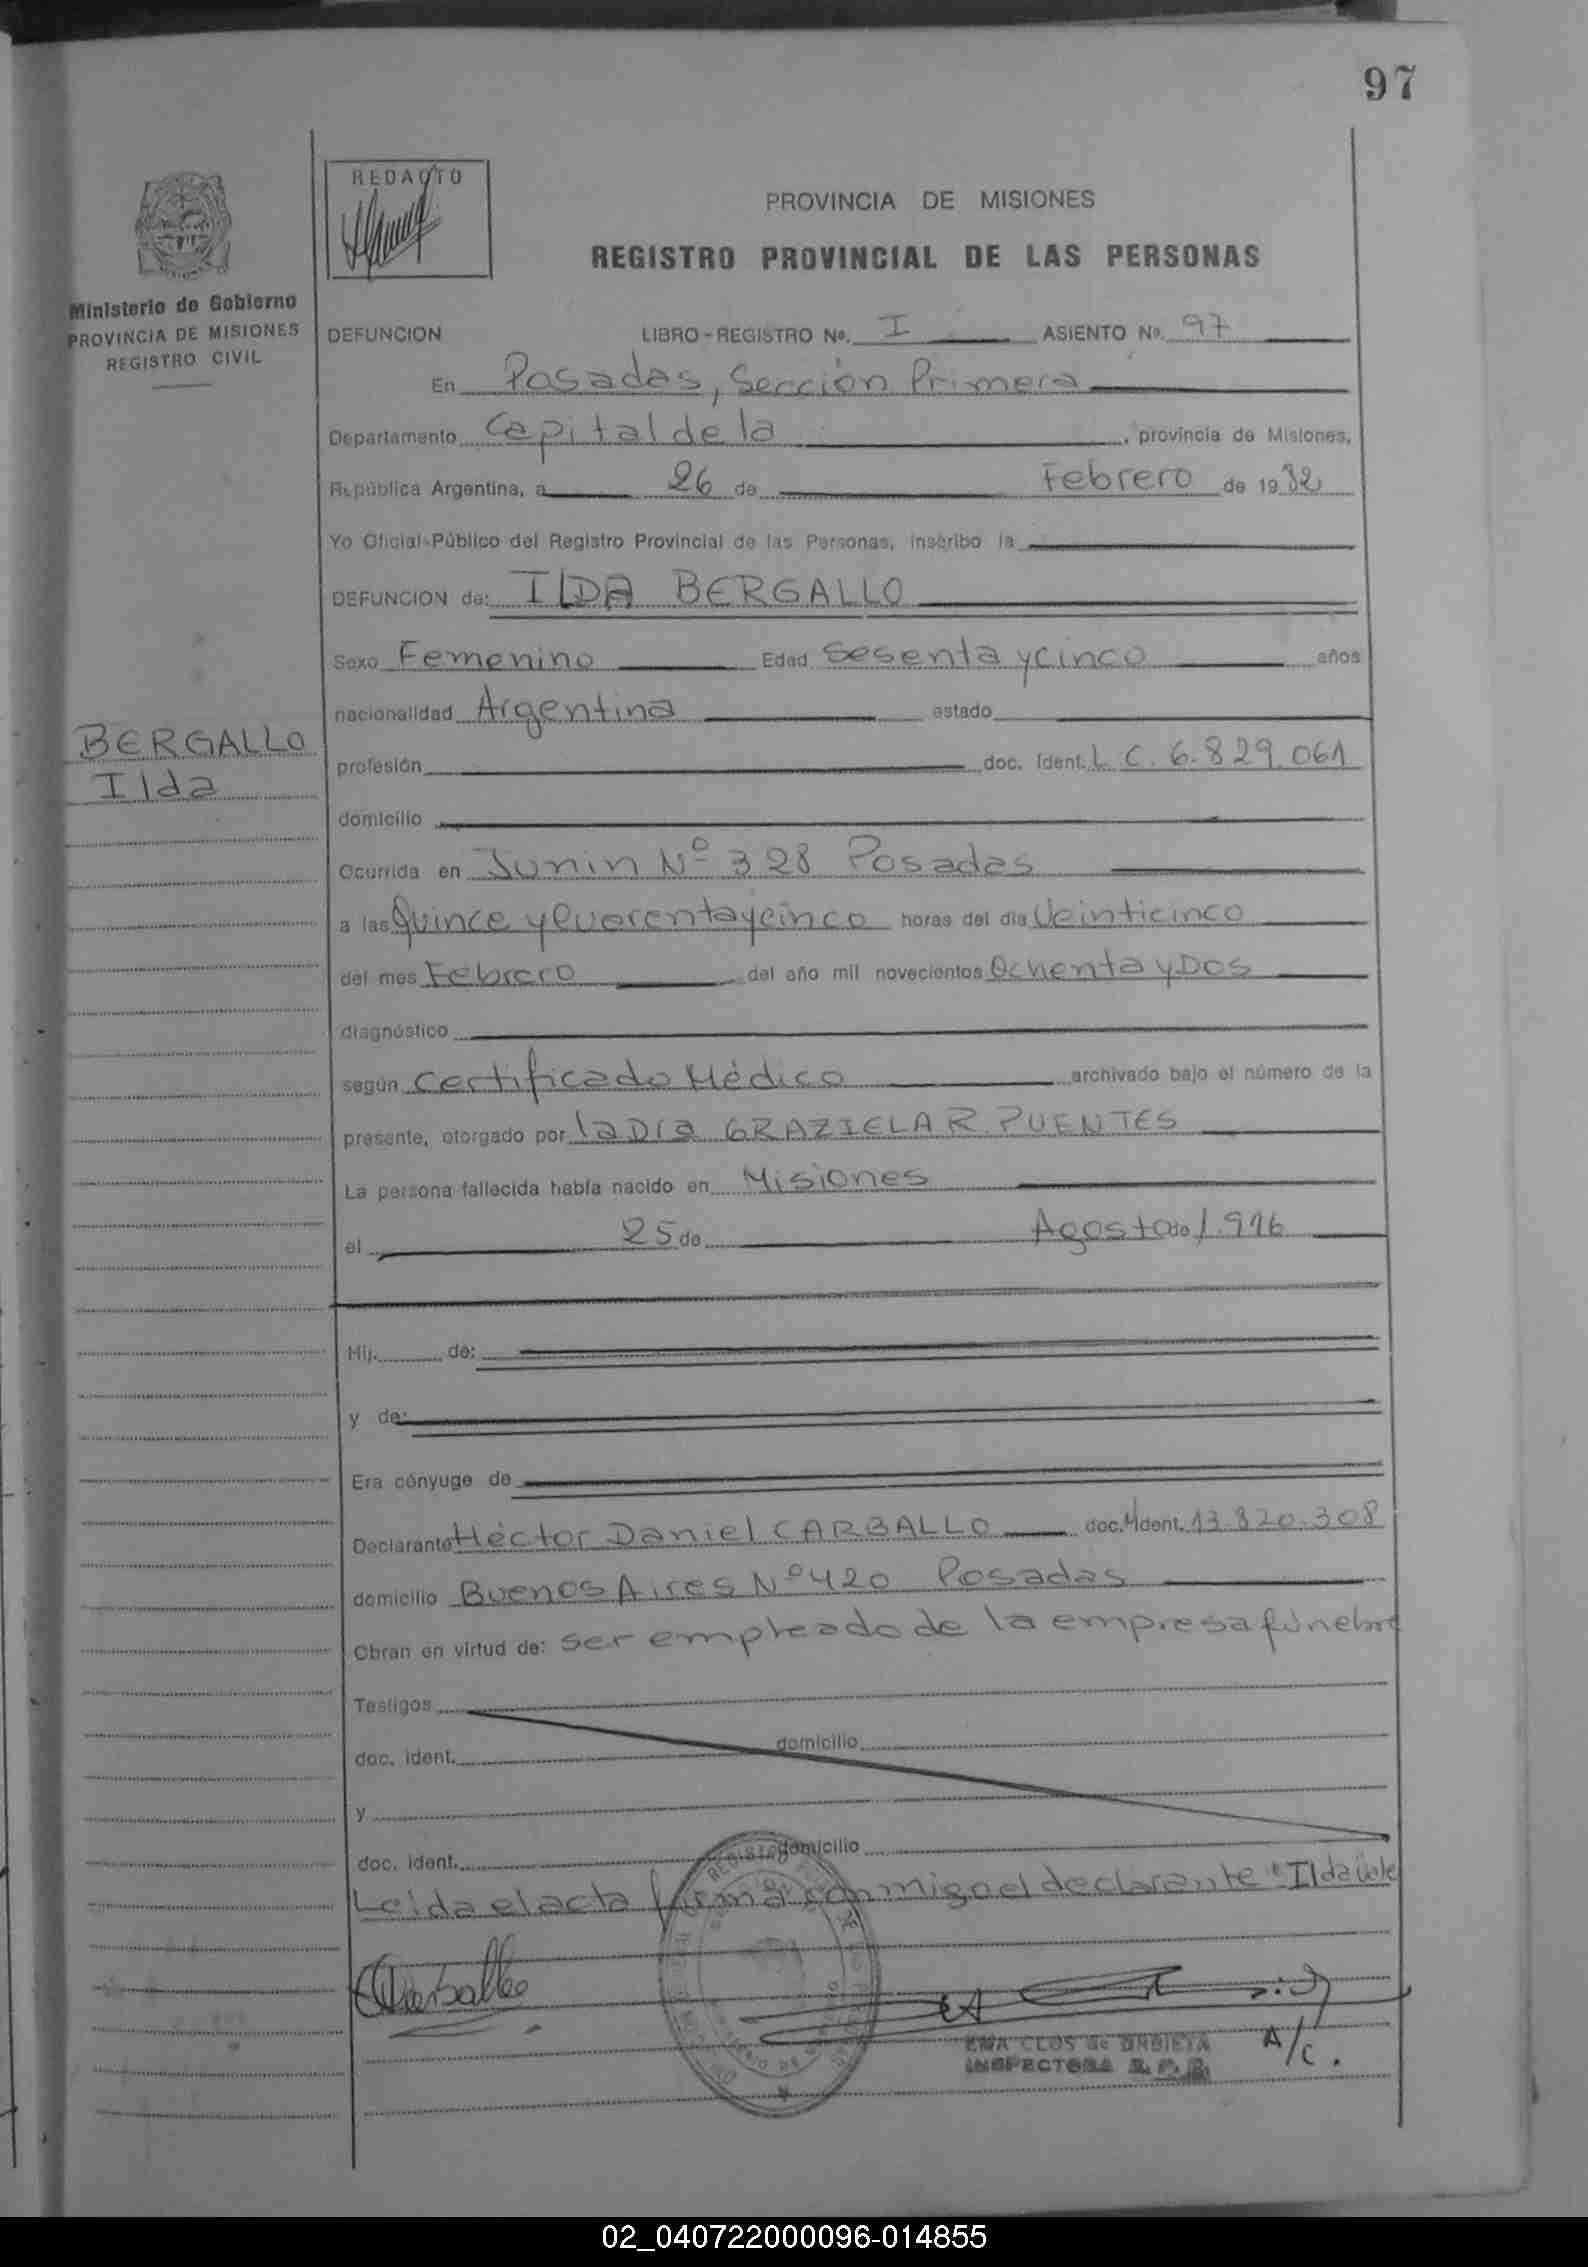 97
REDACTO
PROVINCIA DE MISIONES
REGISTRO PROVINCIAL DE LAS PERSONAS
Ministerio de Gobierno
PROVINCIA DE MISIONES
REGISTRO CIVIL
DEFUNCION LIBRO-REGISTRO Nº. I ASIENTO Nº. 97
En Posadas, Sección Primera
Departamento Capital de la , provincia de Misiones,
República Argentina, a 26 de Febrero de 1982
Yo Oficial Público del Registro Provincial de las Personas, inscribo la
DEFUNCION de: ILDA BERGALLO
Sexo Femenino Edad Sesenta y cinco años
nacionalidad Argentina estado
BERGALLO
Ilda
profesión doc. ident. L C. 6.829.061
domicilio
Ocurrida en Junin Nº 328 Posadas
a las Quince y Cuarenta y cinco horas del día Veinticinco
del mes Febrero del año mil novecientos Ochenta y Dos
diagnóstico
según Certificado Médico archivado bajo el número de la
presente, otorgado por la Dra GRAZIELA R. PUENTES
La persona fallecida había nacido en Misiones
el 25 de Agosto de 1.916
Hij de:
y de:
Era cónyuge de
Declarante Héctor Daniel CARBALLO doc. ident. 13.820.308
domicilio Buenos Aires Nº 420 Posadas
Obran en virtud de: ser empleado de la empresa fúnebre
Testigos
doc. ident. domicilio
y
doc. ident. domicilio
Leida el acta firma conmigo el declarante "Ilda"
Carballo
EMA CLOS de URBIETA
INSPECTORA R. P. P.
A/C.
02_040722000096-014855